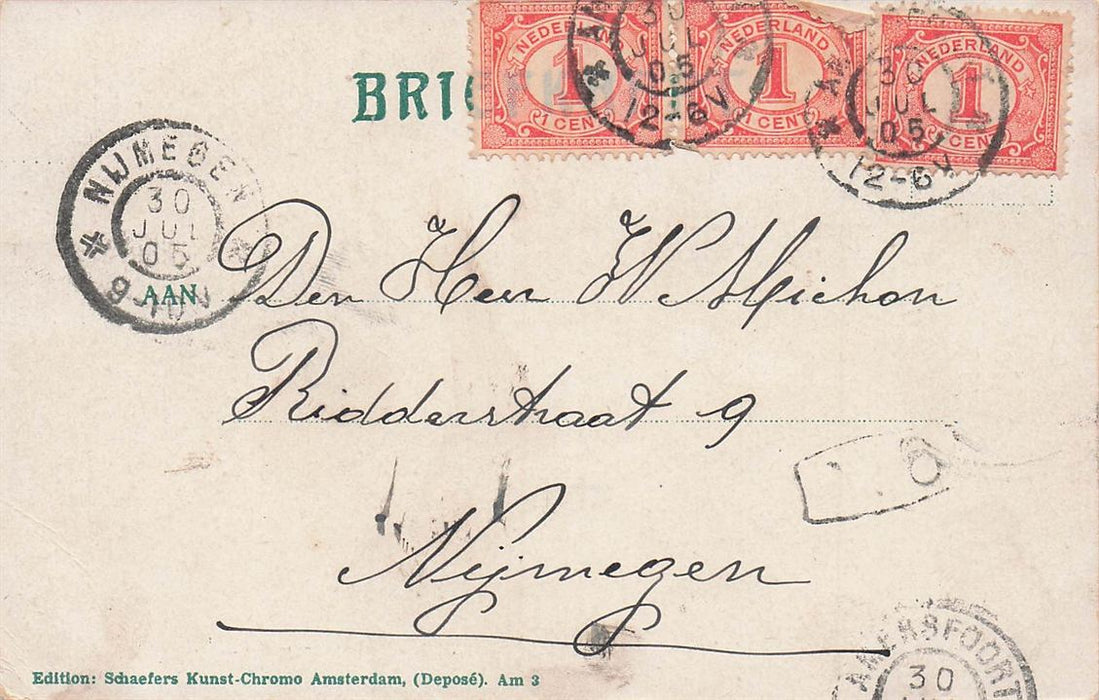 NEDERLAND
1
1 CENT
NEDERLAND
1
1 CENT
NEDERLAND
1
CENT
30
JUL
05
12-6V
30
JUL
05
12-6V
BRI
NIJMEGEN
30
JUL
05
AAN
Den Heer W Michon
Ridderstraat 9
Nijmegen
AMERSFOORT
30
Edition: Schaefers Kunst-Chromo Amsterdam, (Deposé). Am 3